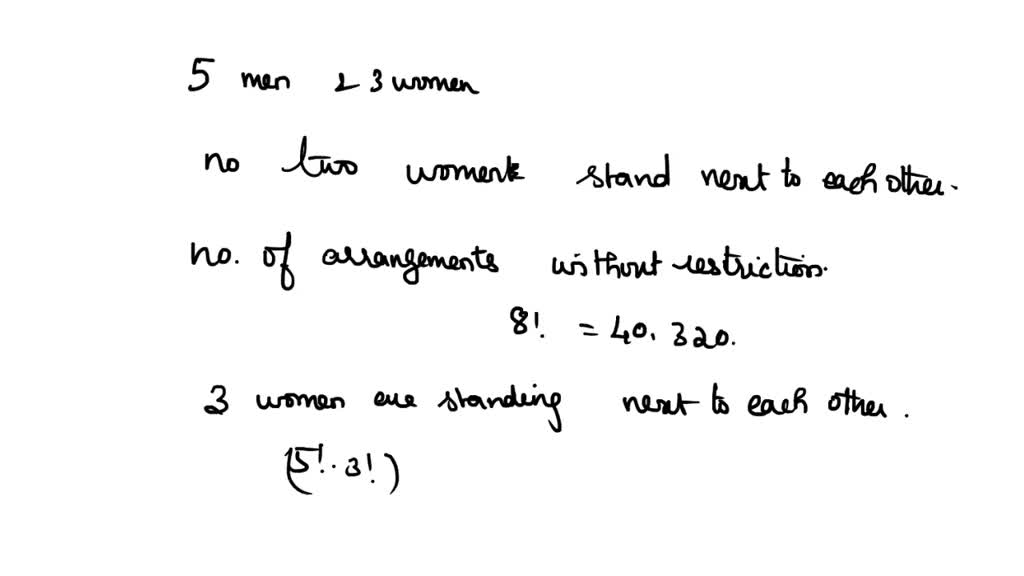 5 men & 3 women
no two women stand next to each other.
no. of arrangements without restriction.
8! = 40,320.
3 women are standing next to each other.
(5!·3!)